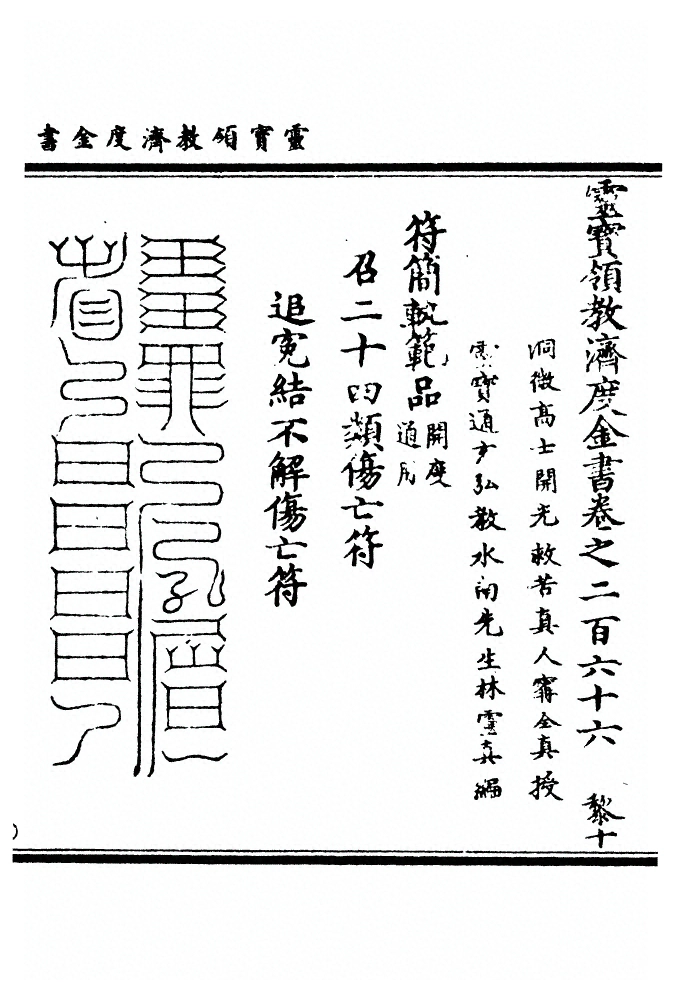 靈寶領教濟度金書
靈寶領教濟度金書卷之二百六十六 黎十
洞微高士開光救苦真人甯全真授
靈寶通玄弘教水南先生林靈真編
符簡軌範品 開度通用
召二十四類傷亡符
追寃結不解傷亡符